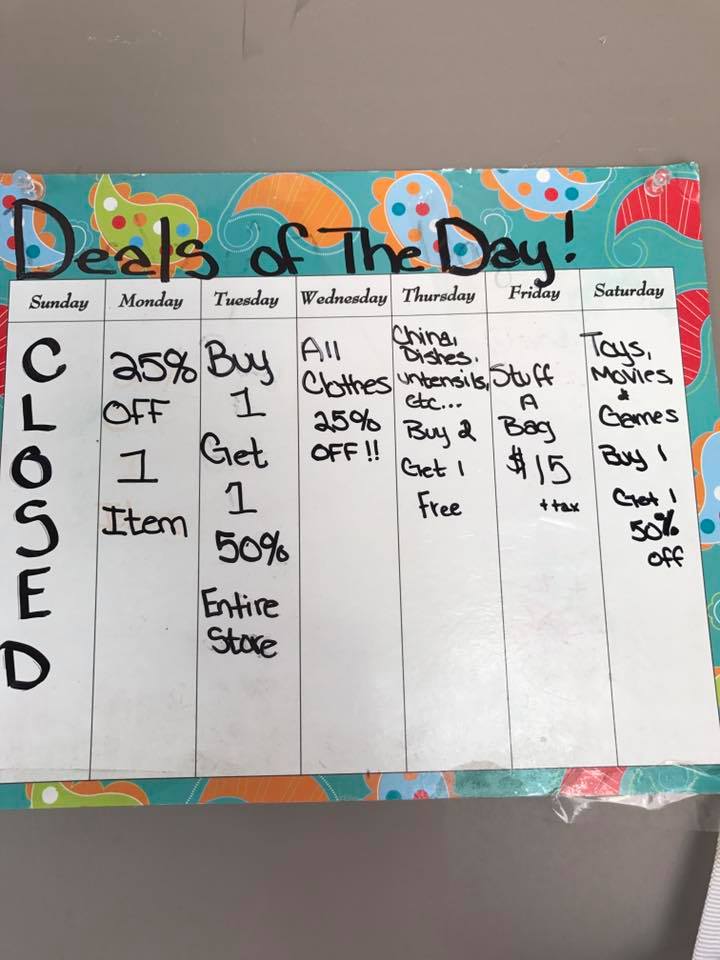 Deals of The Day!
Sunday Monday Tuesday Wednesday Thursday Friday Saturday
C
L
O
S
E
D
25%
OFF
1
Item
Buy
1
Get
1
50%
Entire
Store
All
Clothes
25%
OFF!!
China,
Dishes,
untensils,
etc...
Buy 2
Get 1
Free
Stuff
A
Bag
$15
+tax
Toys,
Movies,
&
Games
Buy 1
Get 1
50%
off